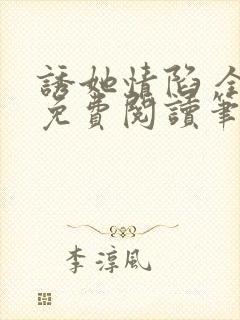 誘她情陷 全
免費閱讀筆
李淳風